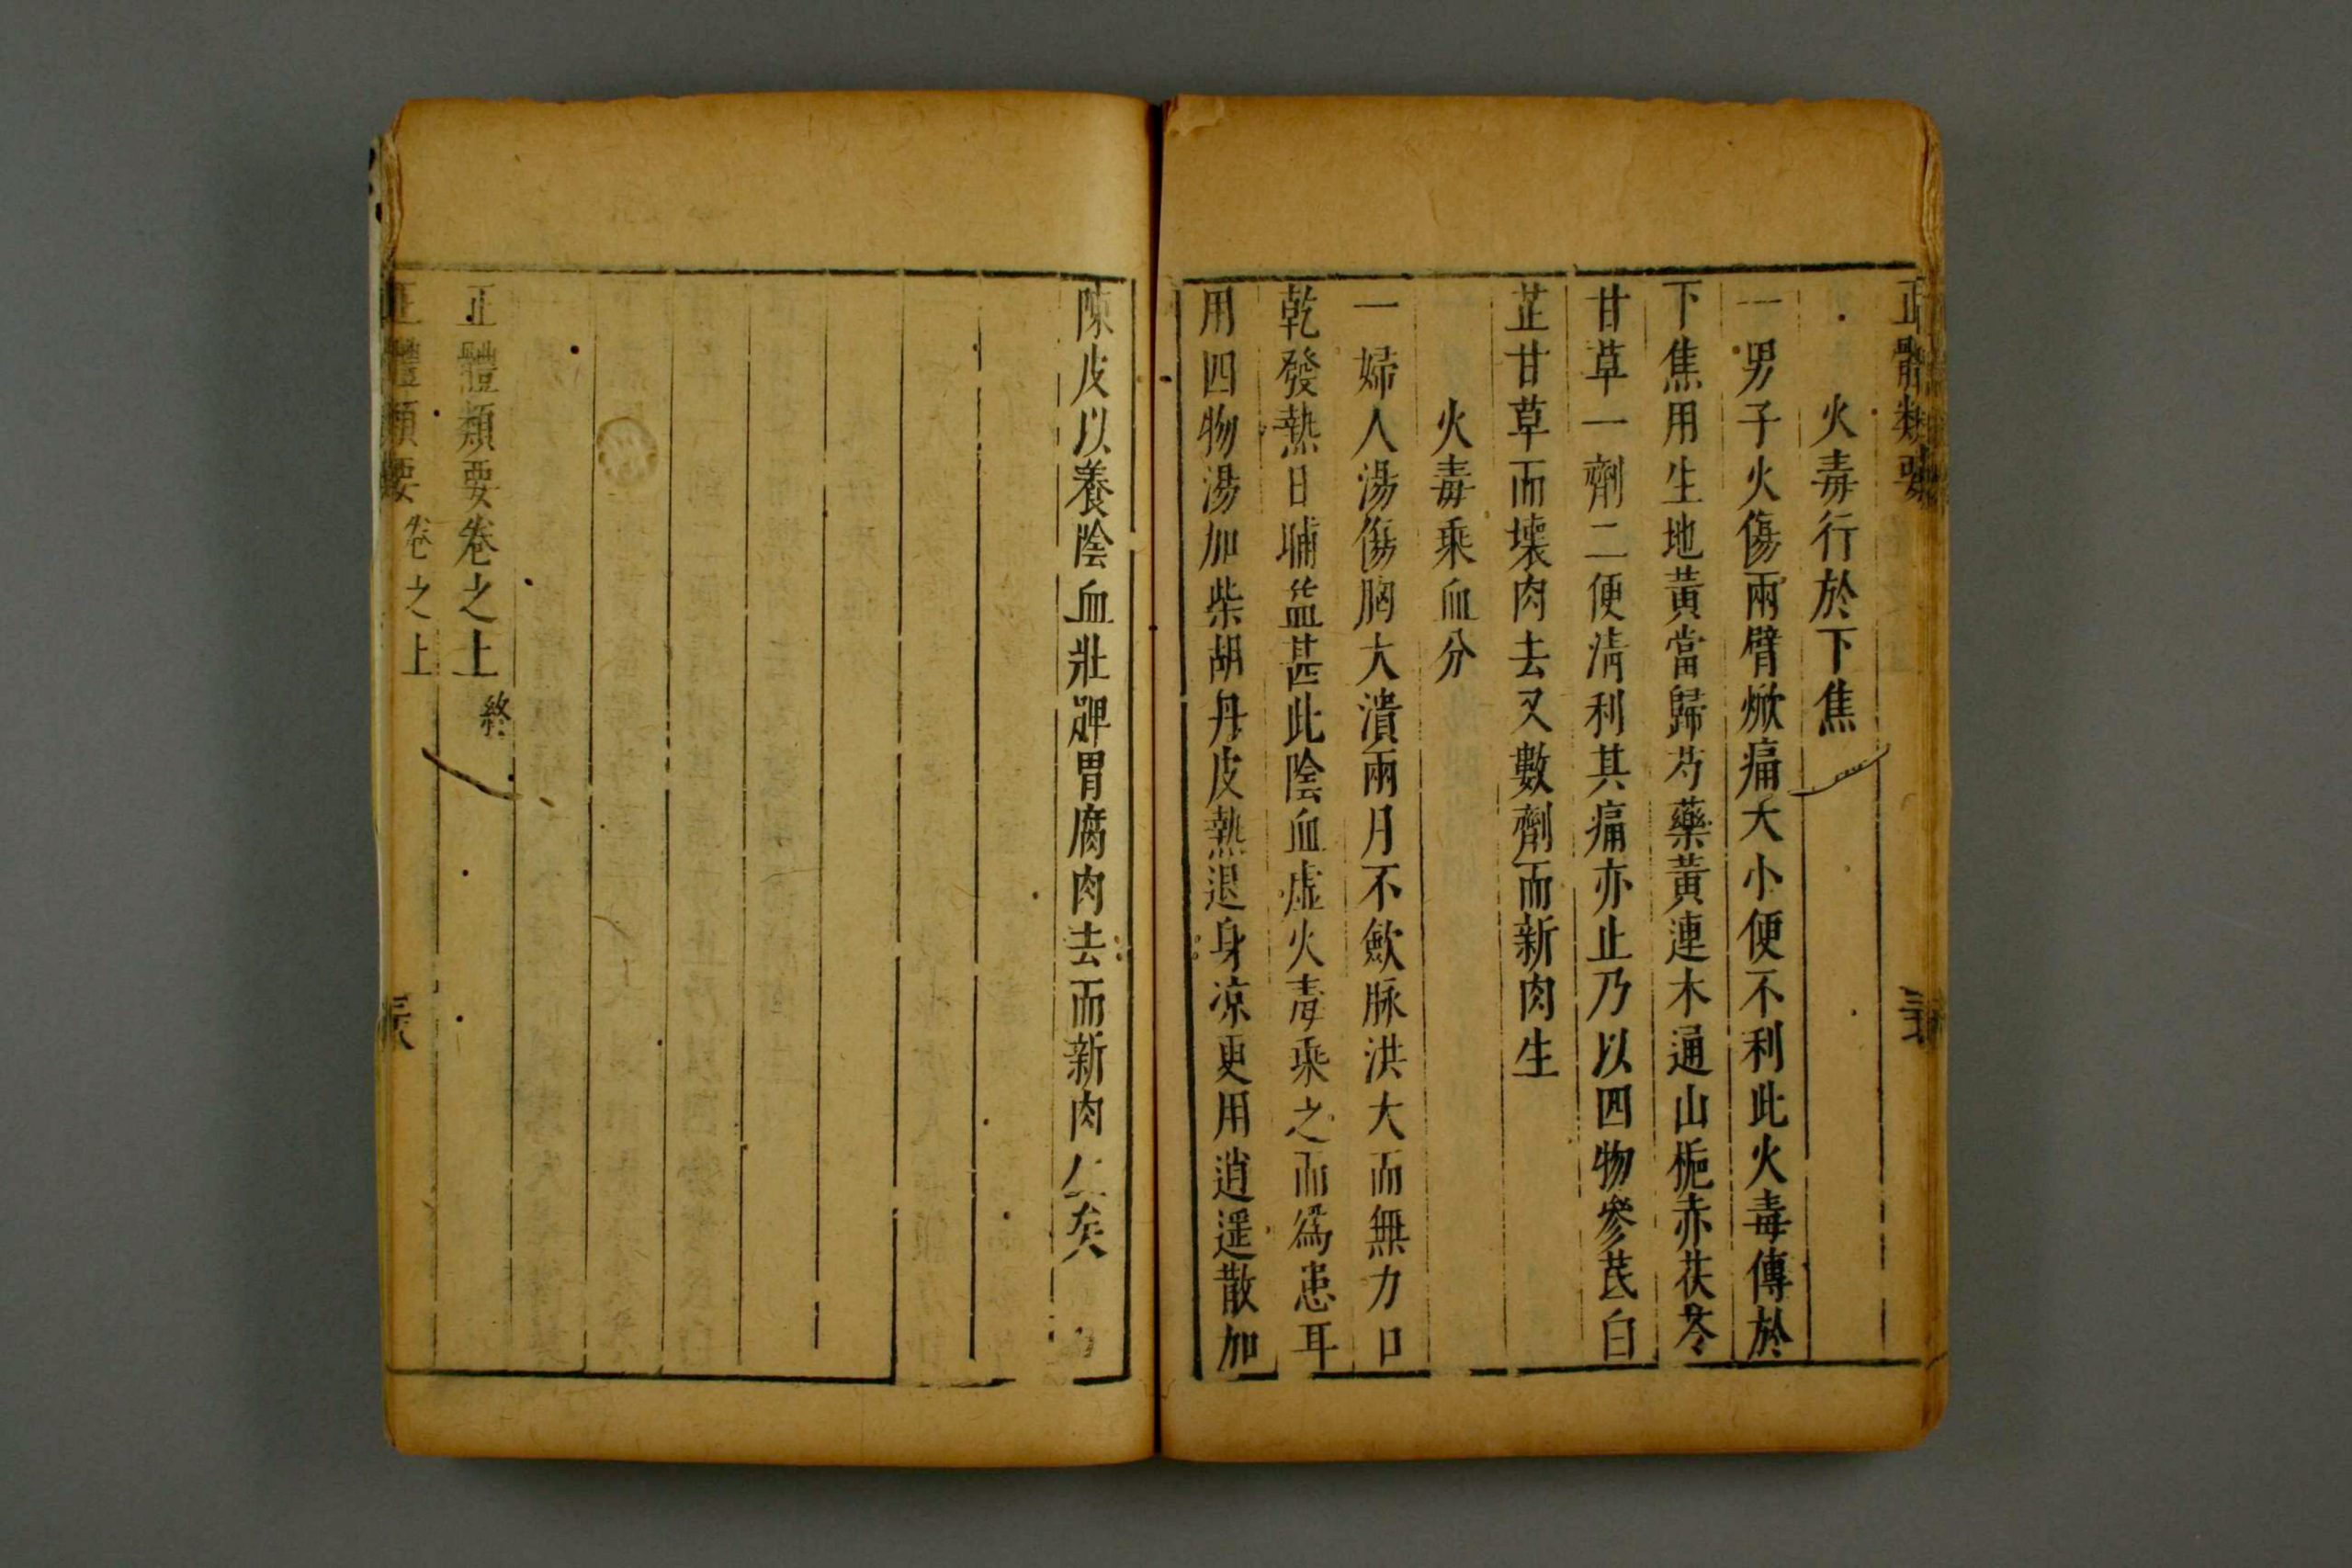 正體類要
火毒行於下焦
一男子火傷兩臂焮痛大小便不利此火毒傳於
下焦用生地黃當歸芍藥黃連木通山梔赤茯苓
甘草一劑二便清利其痛亦止乃以四物參芪白
芷甘草而壞肉去又數劑而新肉生
火毒乘血分
一婦人湯傷胸大潰兩月不歛脉洪大而無力口
乾發熱日晡益甚此陰血虛火毒乘之而爲患耳
用四物湯加柴胡丹皮熱退身凉更用逍遥散加
陳皮以養陰血壯脾胃腐肉去而新肉生矣
正體類要卷之上 終
正體類要 卷之上